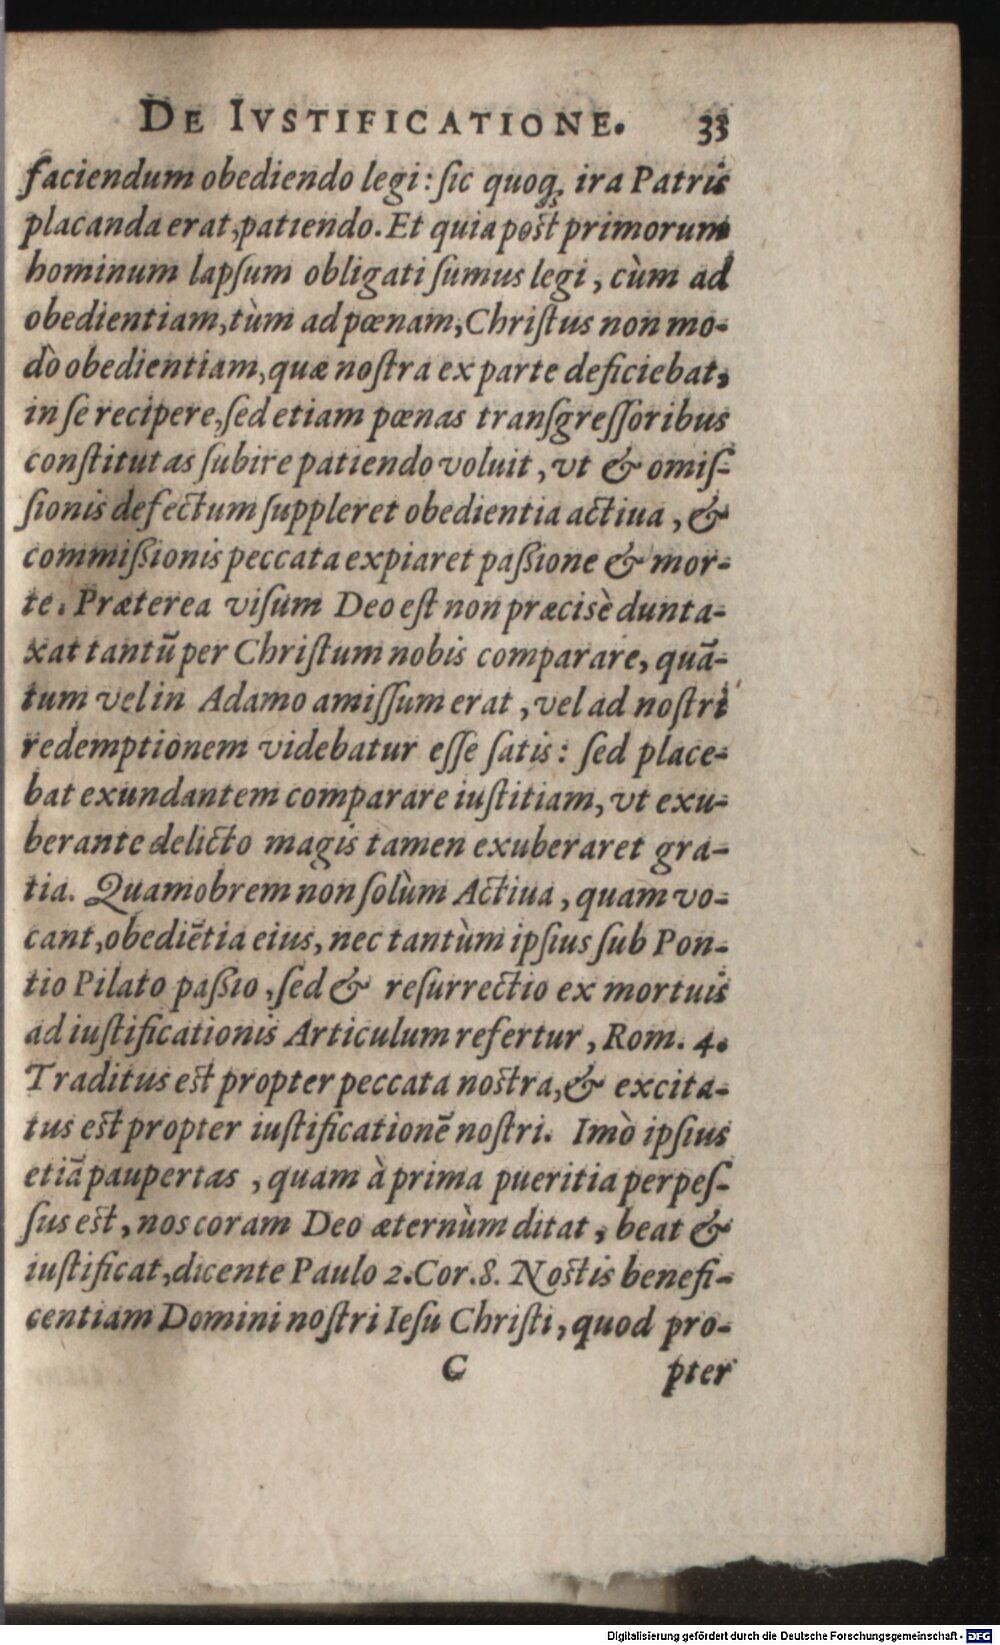 DE IVSTIFICATIONE. 33
faciendum obediendo legi: ſic quoq; ira Patris
placanda erat, patiendo. Et quia poſt primorum
hominum lapſum obligati ſumus legi, cùm ad
obedientiam, tùm ad pœnam, Chriſtus non mo-
dò obedientiam, quæ noſtra ex parte deficiebat,
in ſe recipere, ſed etiam pœnas tranſgreſſoribus
conſtitutas ſubire patiendo voluit, vt & omiſ-
ſionis defectum ſuppleret obedientia actiua, &
commißionis peccata expiaret paßione & mor-
te. Præterea viſum Deo eſt non præcisè dunta-
xat tantũ per Chriſtum nobis comparare, quã-
tum vel in Adamo amiſſum erat, vel ad noſtri
redemptionem videbatur eſſe ſatis: ſed place-
bat exundantem comparare iuſtitiam, vt exu-
berante delicto magis tamen exuberaret gra-
tia. Quamobrem non ſolùm Actiua, quam vo-
cant, obediẽtia eius, nec tantùm ipſius ſub Pon-
tio Pilato paßio, ſed & reſurrectio ex mortuis
ad iuſtificationis Articulum refertur, Rom. 4.
Traditus eſt propter peccata noſtra, & excita-
tus eſt propter iuſtificationẽ noſtri. Imò ipſius
etiã paupertas, quam à prima pueritia perpeſ-
ſus eſt, nos coram Deo æternùm ditat, beat &
iuſtificat, dicente Paulo 2. Cor. 8. Noſtis benefi-
centiam Domini noſtri Ieſu Chriſti, quod pro-
C pter
Digitalisierung gefördert durch die Deutsche Forschungsgemeinschaft - DFG